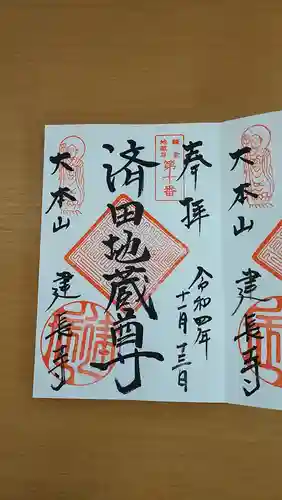 奉拝
令和四年
十二月十三日
鎌倉
地蔵尊
第十番
済田地蔵尊
大本山
建長寺
大本山
建長寺